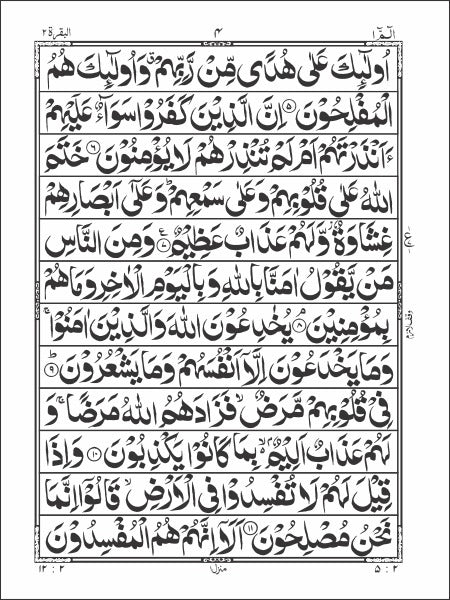 الٓمّٓ ١ ۴ البقرة ٢
اُولٰٓئِكَ عَلٰى هُدًى مِّنْ رَّبِّهِمْ ۗ وَاُولٰٓئِكَ هُمُ
الْمُفْلِحُوْنَ ۝۵ اِنَّ الَّذِيْنَ كَفَرُوْا سَوَآءٌ عَلَيْهِمْ
ءَاَنْذَرْتَهُمْ اَمْ لَمْ تُنْذِرْهُمْ لَا يُؤْمِنُوْنَ ۝۶ خَتَمَ
اللّٰهُ عَلٰى قُلُوْبِهِمْ وَعَلٰى سَمْعِهِمْ ؕ وَعَلٰٓى اَبْصَارِهِمْ
غِشَاوَةٌ ؗ وَّلَهُمْ عَذَابٌ عَظِيْمٌ ۝۷ وَمِنَ النَّاسِ
مَنْ يَّقُوْلُ اٰمَنَّا بِاللّٰهِ وَبِالْيَوْمِ الْاٰخِرِ وَمَا هُمْ
بِمُؤْمِنِيْنَ ۝۸ يُخٰدِعُوْنَ اللّٰهَ وَالَّذِيْنَ اٰمَنُوْا ۚ
وَمَا يَخْدَعُوْنَ اِلَّاۤ اَنْفُسَهُمْ وَمَا يَشْعُرُوْنَ ؕ ۝۹
فِيْ قُلُوْبِهِمْ مَّرَضٌ ۙ فَزَادَهُمُ اللّٰهُ مَرَضًا ۚ وَ
لَهُمْ عَذَابٌ اَلِيْمٌ ۢ ۙ بِمَا كَانُوْا يَكْذِبُوْنَ ۝۱۰ وَاِذَا
قِيْلَ لَهُمْ لَا تُفْسِدُوْا فِي الْاَرْضِ ۙ قَالُوْۤا اِنَّمَا
نَحْنُ مُصْلِحُوْنَ ۝۱۱ اَلَاۤ اِنَّهُمْ هُمُ الْمُفْسِدُوْنَ
٢ : ۵ منزل ١ ٢ : ١٢